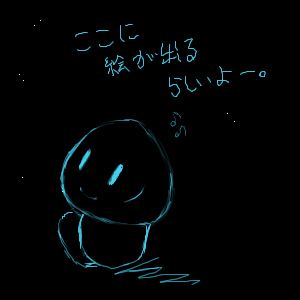 ここに
絵が出る
らしいよー。
♪
♪